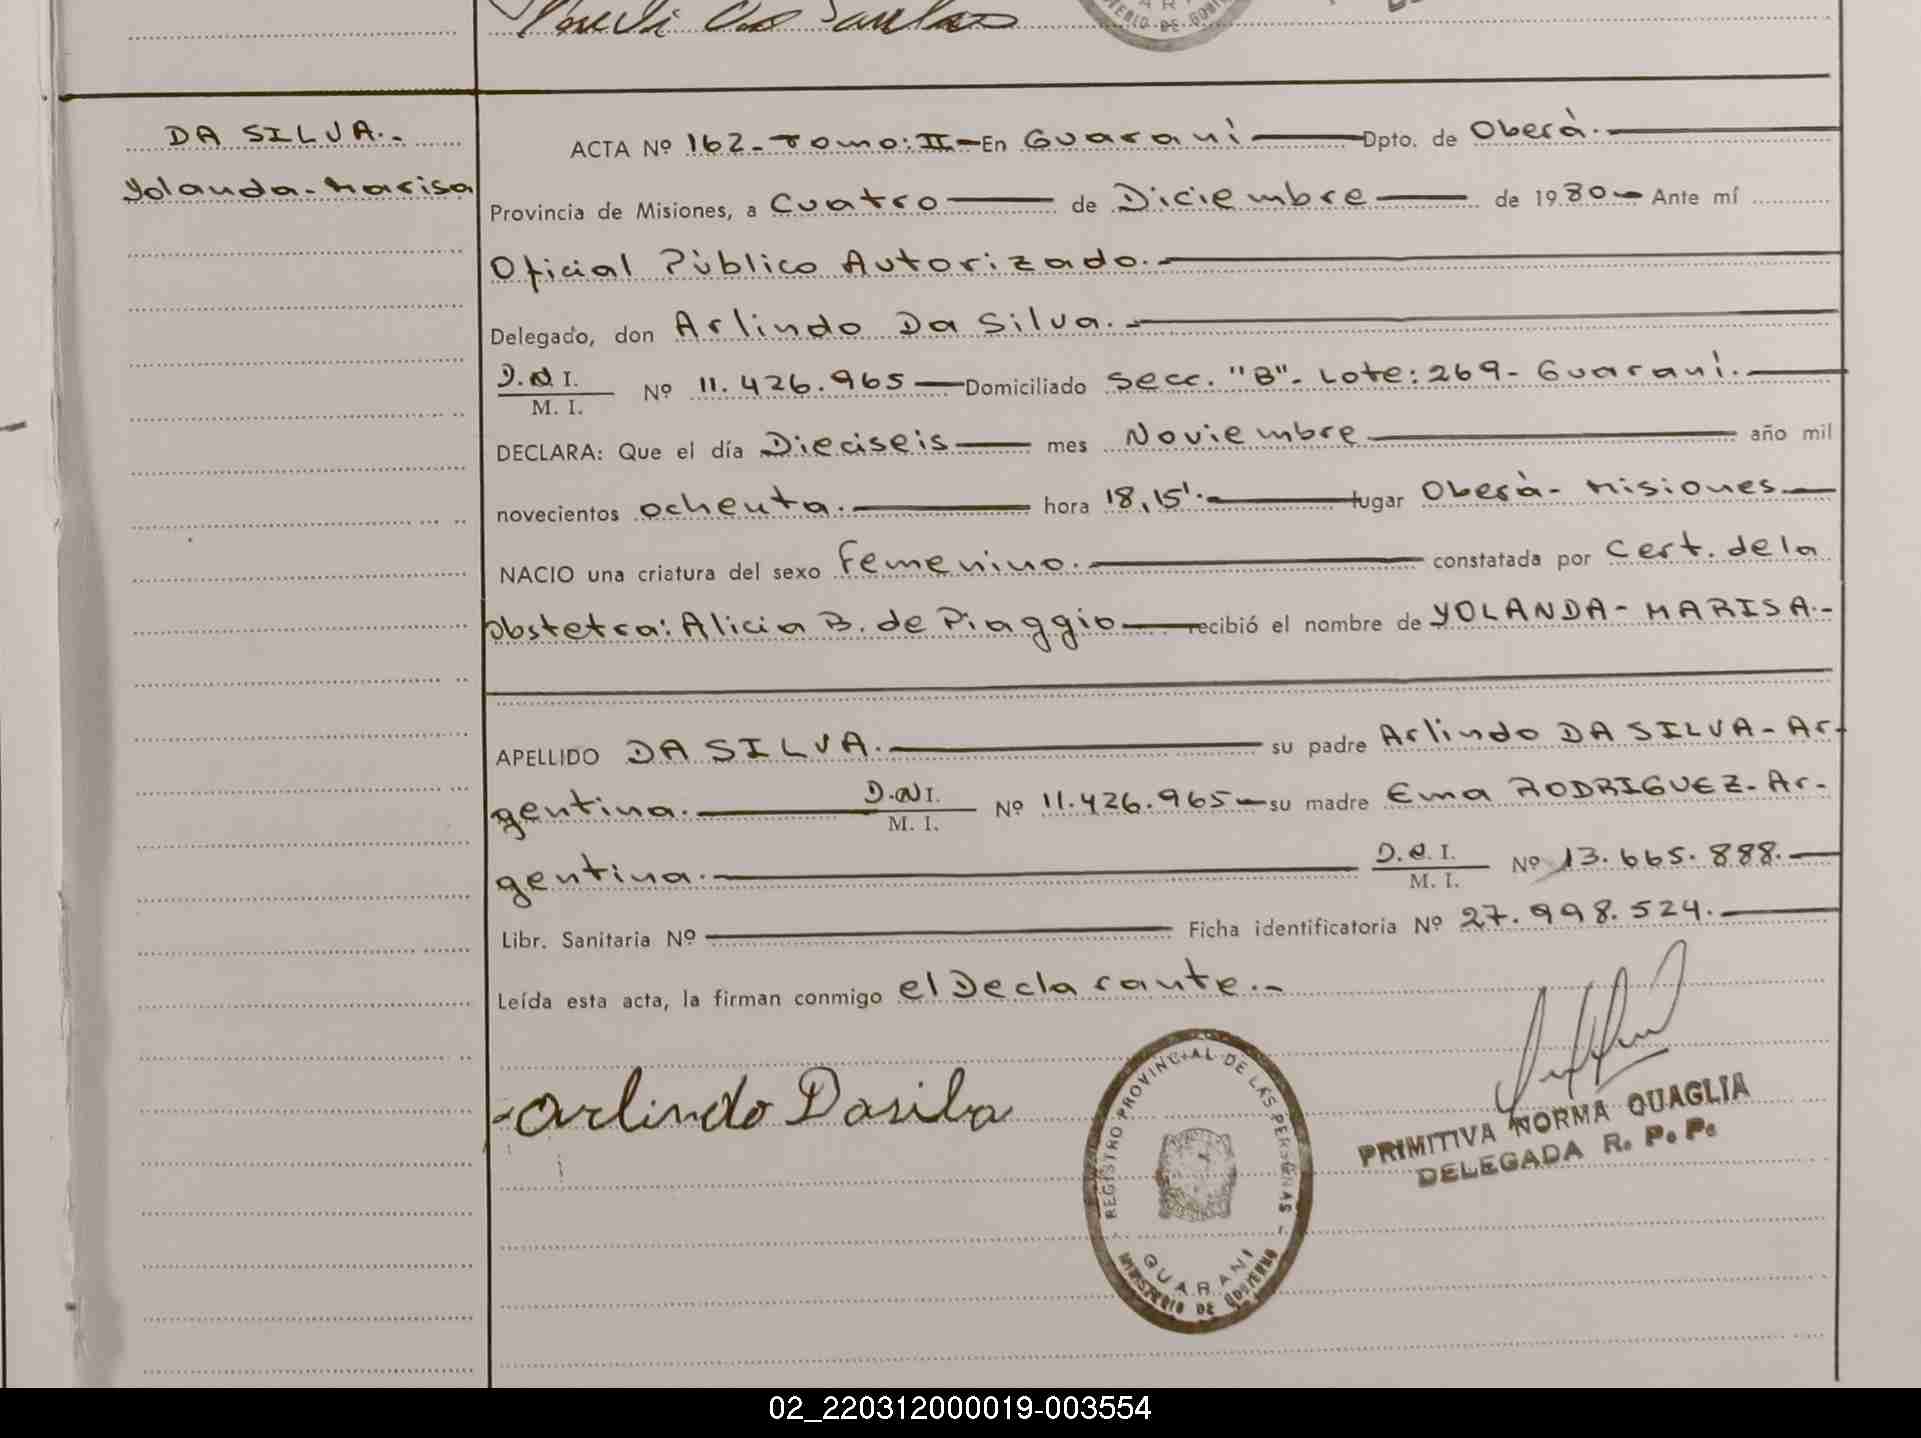 DA SILVA.-
Yolanda-Marisa
ACTA Nº 162- Tomo: II- En Guaraní Dpto. de Oberà.
Provincia de Misiones, a Cuatro de Diciembre de 1980- Ante mí
Oficial Pùblico Autorizado.
Delegado, don Arlindo Da Silva.
D.N.I.
M. I. Nº 11.426.965 Domiciliado Secc. "B"- Lote: 269- Guaraní.
DECLARA: Que el día Dieciseis mes Noviembre año mil
novecientos ochenta. hora 18,15'. lugar Oberà- Misiones
NACIO una criatura del sexo femenino. constatada por Cert. de la
obstetra: Alicia B. de Piaggio recibió el nombre de YOLANDA- MARISA.-
APELLIDO DA SILVA. su padre Arlindo DA SILVA- Ar-
gentina. D.N.I. M. I. Nº 11.426.965- su madre Ema RODRIGUEZ- Ar-
gentina. D.N.I. M. I. Nº 13.665.888.
Libr. Sanitaria Nº Ficha identificatoria Nº 27.998.524.
Leída esta acta, la firman conmigo el Declarante.-
Arlindo Dasilva
REGISTRO PROVINCIAL DE LAS PERSONAS
GUARANI
MINISTERIO DE GOBIERNO
PRIMITIVA NORMA QUAGLIA
DELEGADA R. P. P.
02_220312000019-003554